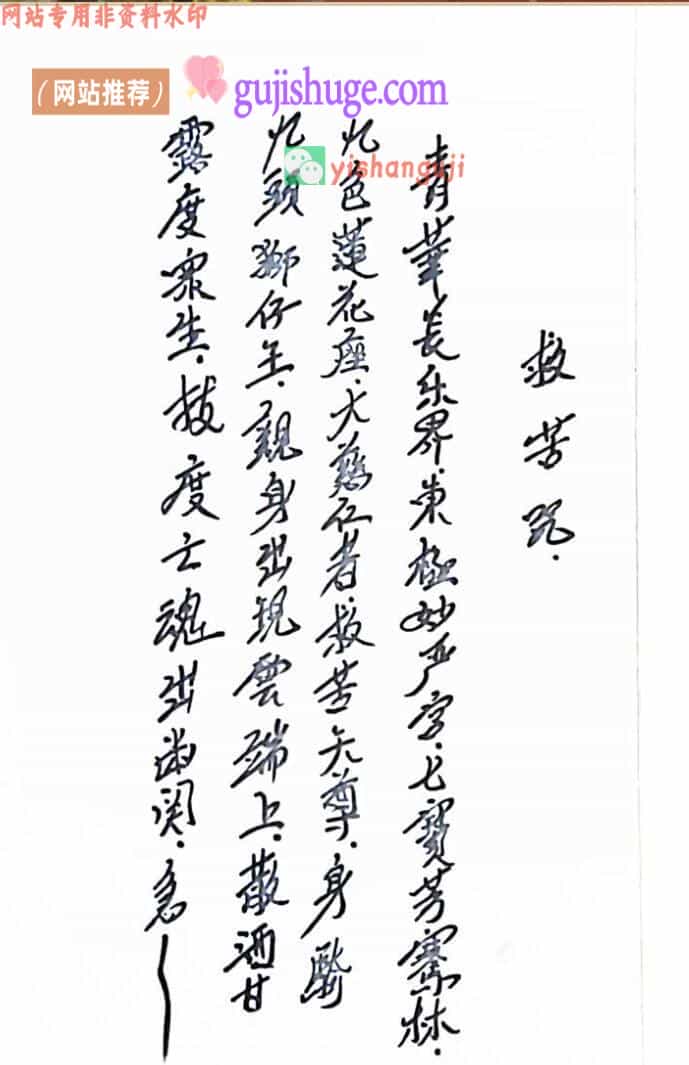 网站专用非资料水印
（网站推荐）
gujishuge.com
yishanguji
救苦咒.
青華長乐界.東極妙严宮.七寶芳騫林.
九色蓮花座.大慈仁者.救苦天尊.身騎
九頭獅仔王.親身出现雲端上.散洒甘
露度眾生.拔度亡魂出幽関.急